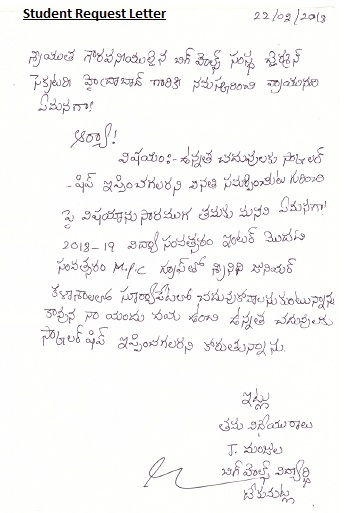 Student Request Letter
22/02/2018
శ్రీయుత గౌరవనీయులైన బిగ్ హెల్ప్ సంస్థ చైర్మాన్
సెక్రటరి హైదరాబాద్ గారికి నమస్కరించి వ్రాయునది
ఏమనగా!
ఆర్యా!
విషయం:- ఉన్నత చదువులకు స్కాలర్
-షిప్ ఇప్పించగలరని వినతి సమర్పించుట గురించి
పై విషయానుసారముగ తమకు మనవి ఏమనగా!
2018-19 విద్యా సంవత్సరం ఇంటర్ మొదటి
సంవత్సరం M.P.C గ్రూప్ తో శ్రీనిధి జూనియర్
కళాశాలలో సూర్యాపేటలో చదువుకోవాలనుకుంటున్నాను
కావున నా యందు దయ ఉంచి ఉన్నత చదువులకు
స్కాలర్ షిప్ ఇప్పించగలరని కోరుతున్నాను.
ఇట్లు
తమ విధేయురాలు
J. మంజుల
బిగ్ హెల్ప్ విద్యార్థి
టేకుమట్ల